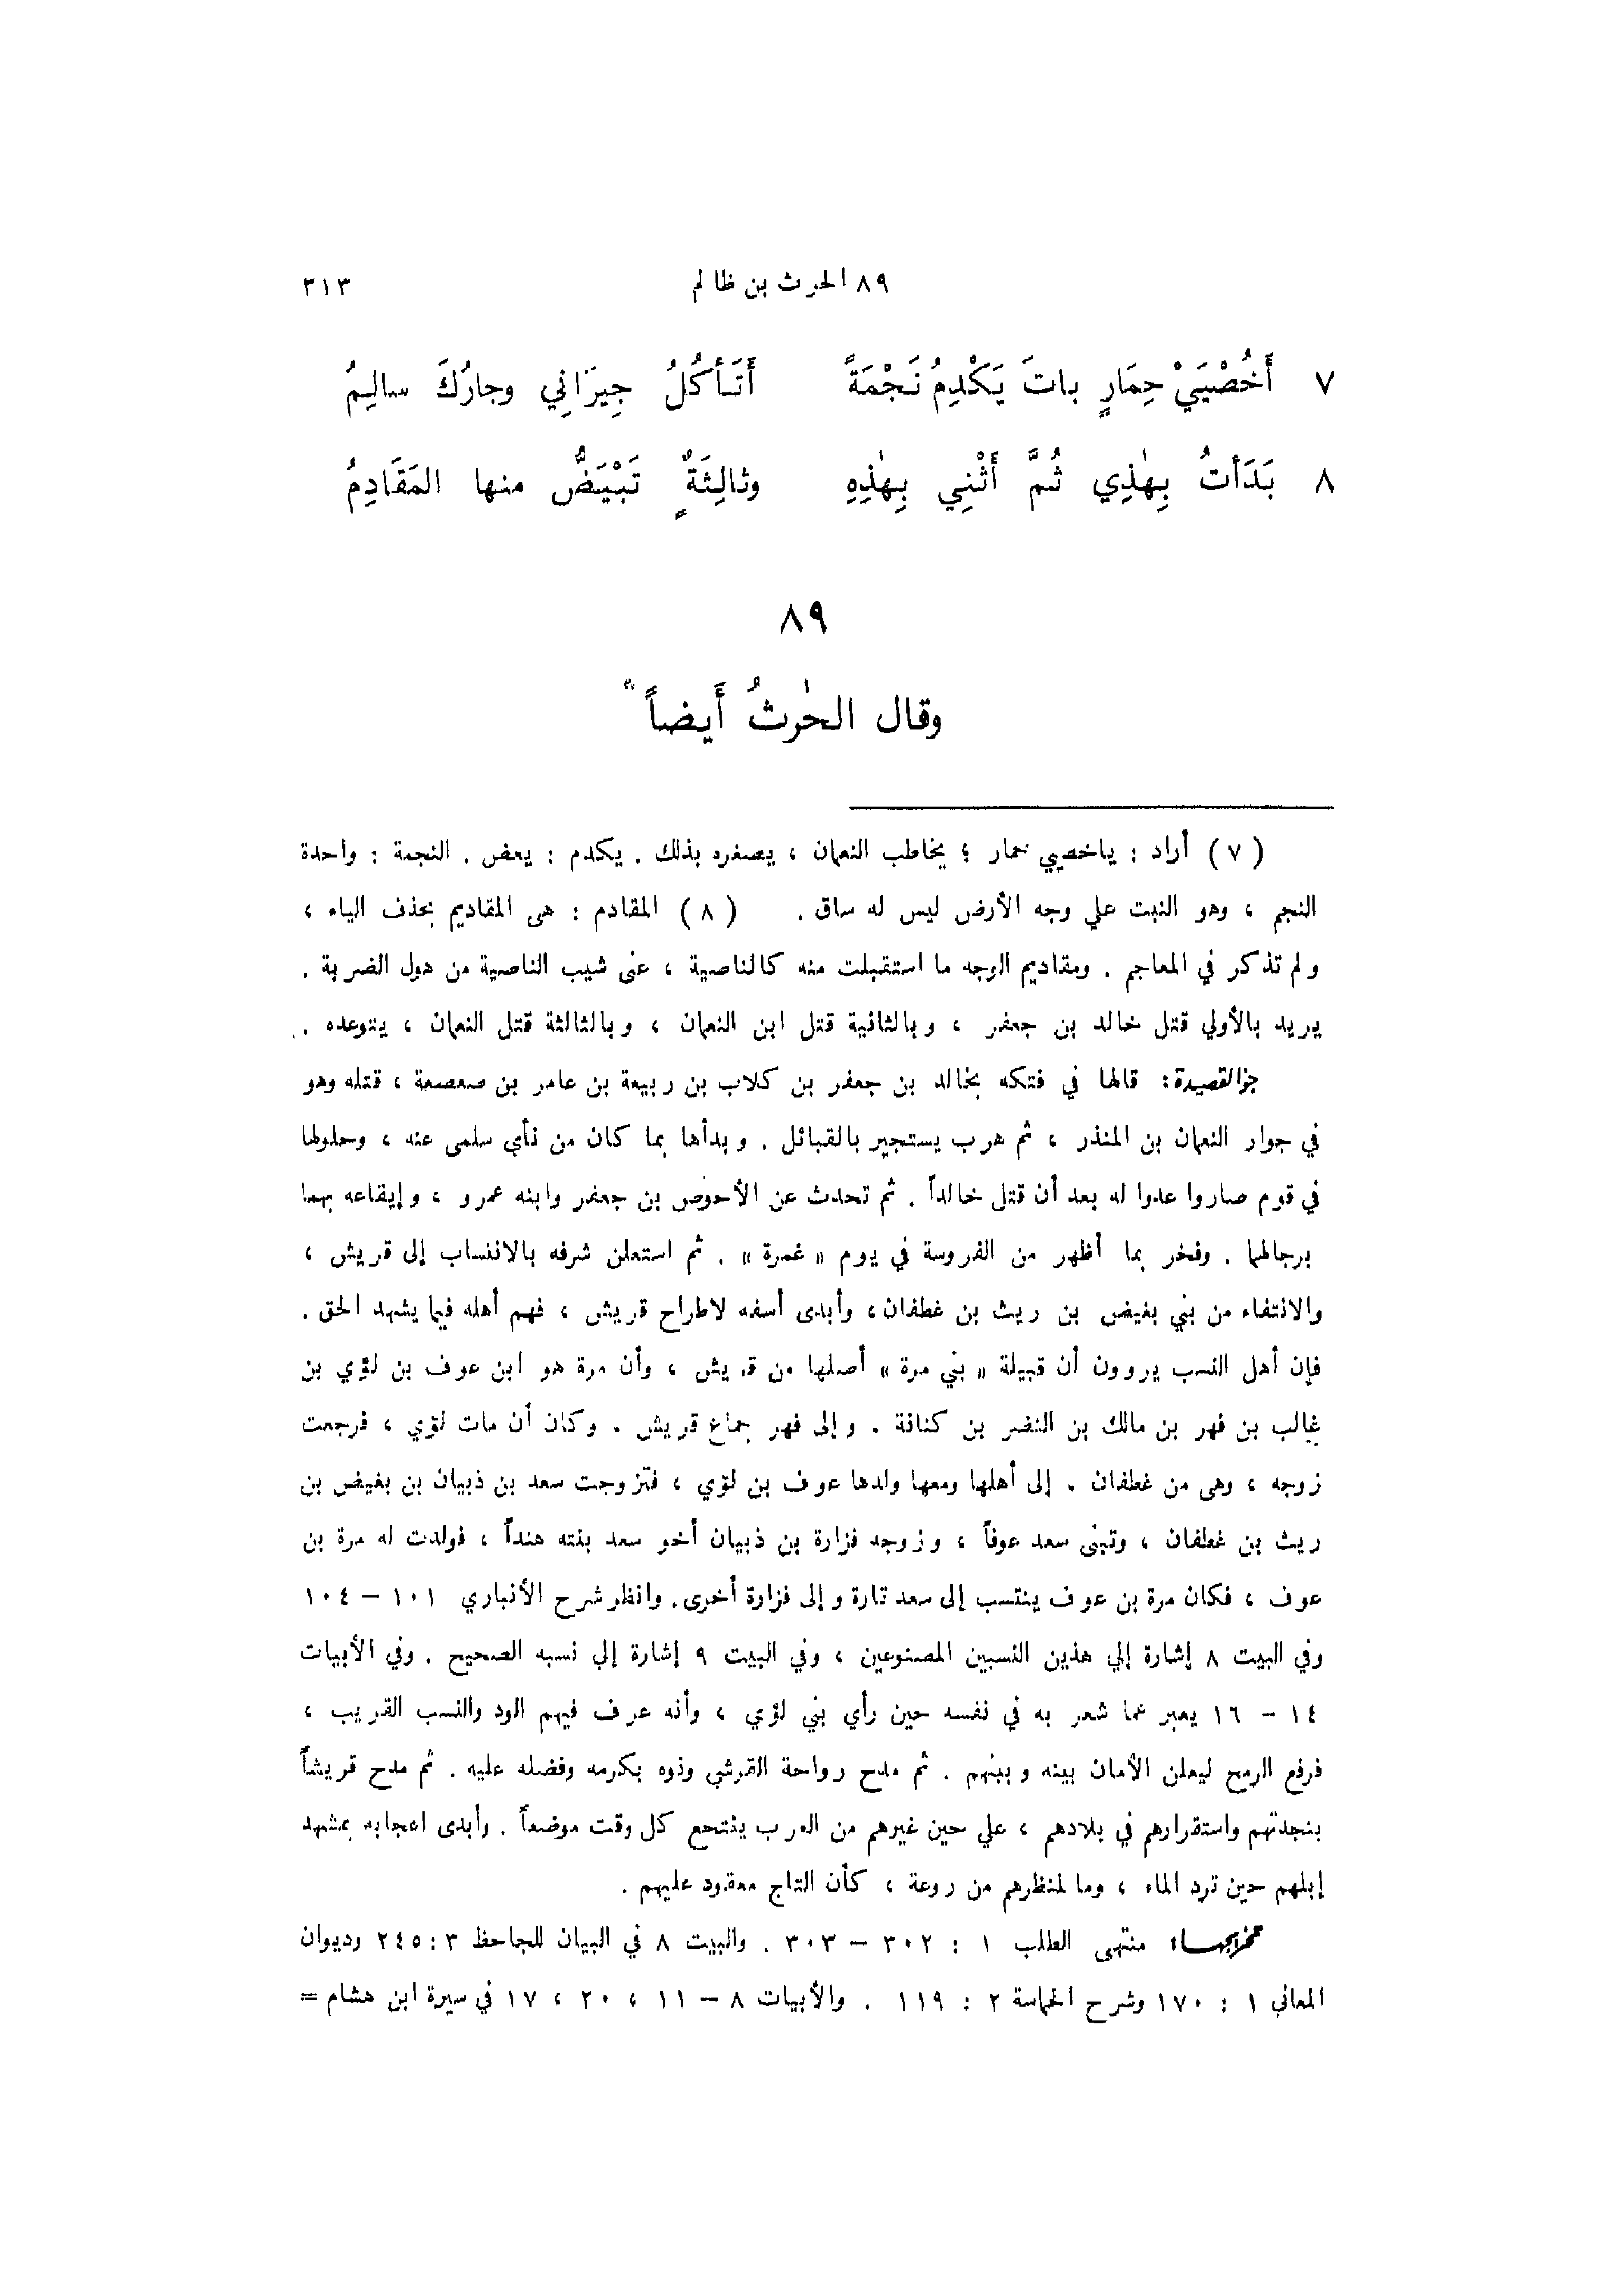 ٨٩ الحرث بن ظالم ٣١٣
٧ أَخُصْيَيْ حِمَارٍ باتَ يَكْدِمُ نَجْمَةً أَتَأكُلُ جِيرَانِي وجارُكَ سالِمُ
٨ بَدَأتُ بِهٰذِي ثُمَّ أَثْنِي بِهٰذِهِ وثالِثَةٌ تَبْيَضُّ منها المَقَادِمُ
٨٩
وقال الحٰرثُ أَيضاً *
(٧) أراد : ياخصيي حمار ؛ يخاطب النعمان ، يصغره بذلك . يكدم : يعض . النجمة : واحدة
النجم ، وهو النبت علي وجه الأرض ليس له ساق . (٨) المقادم : هى المقاديم بحذف الياء ،
ولم تذكر في المعاجم . ومقاديم الوجه ما استقبلت منه كالناصية ، عنى شيب الناصية من هول الضربة .
يريد بالأولي قتل خالد بن جعفر ، وبالثانية قتل ابن النعمان ، وبالثالثة قتل النعمان ، يتوعده .
جوالقصيدة: قالها في فتكه بخالد بن جعفر بن كلاب بن ربيعة بن عامر بن صعصعة ، قتله وهو
في جوار النعمان بن المنذر ، ثم هرب يستجير بالقبائل . وبدأها بما كان من نأى سلمى عنه ، وحلولها
في قوم صاروا عدوا له بعد أن قتل خالداً . ثم تحدث عن الأحوص بن جعفر وابنه عمرو ، وإيقاعه بهما
برجالهما . وفخر بما أظهر من الفروسة في يوم « غمرة » . ثم استعلن شرفه بالانتساب إلى قريش ،
والانتفاء من بني بغيض بن ريث بن غطفان، وأبدى أسفه لاطراح قريش ، فهم أهله فيما يشهد الحق .
فإن أهل النسب يروون أن قبيلة « بني مرة » أصلها من قريش ، وأن مرة هو ابن عوف بن لؤي بن
غالب بن فهر بن مالك بن النضر بن كنانة . وإلى فهر جماع قريش . وكان أن مات لؤي ، فرجعت
زوجه ، وهى من غطفان . إلى أهلها ومعها ولدها عوف بن لؤي ، فتزوجت سعد بن ذبيان بن بغيض بن
ريث بن غطفان ، وتبنى سعد عوفاً ، وزوجه فزارة بن ذبيان أخو سعد بنته هنداً ، فولدت له مرة بن
عوف ، فكان مرة بن عوف ينتسب إلى سعد تارة وإلى فزارة أخرى. وانظر شرح الأنباري ١٠١ – ١٠٤
وفي البيت ٨ إشارة إلي هذين النسبين المصنوعين ، وفي البيت ٩ إشارة إلي نسبه الصحيح . وفي الأبيات
١٤ – ١٦ يعبر عما شعر به في نفسه حين رأي بني لؤي ، وأنه عرف فيهم الود والنسب القريب ،
فرفع الرمح ليعلن الأمان بينه وبينهم . ثم مدح رواحة القرشي ونوه بكرمه وفضله عليه . ثم مدح قريشاً
بنجدتهم واستقرارهم في بلادهم ، علي حين غيرهم من العرب ينتجع كل وقت موضعاً . وأبدى اعجابه بمشهد
إبلهم حين ترد الماء ، وما لمنظرهم من روعة ، كأن التاج معقود عليهم .
تخريجها: منتهى الطلب ١ : ٣٠٢ – ٣٠٣ . والبيت ٨ في البيان للجاحظ ٣: ٢٤٥ وديوان
المعاني ١ : ١٧٠ وشرح الحماسة ٢ : ١١٩ . والأبيات ٨ – ١١ ، ٢٠ ، ١٧ في سيرة ابن هشام =